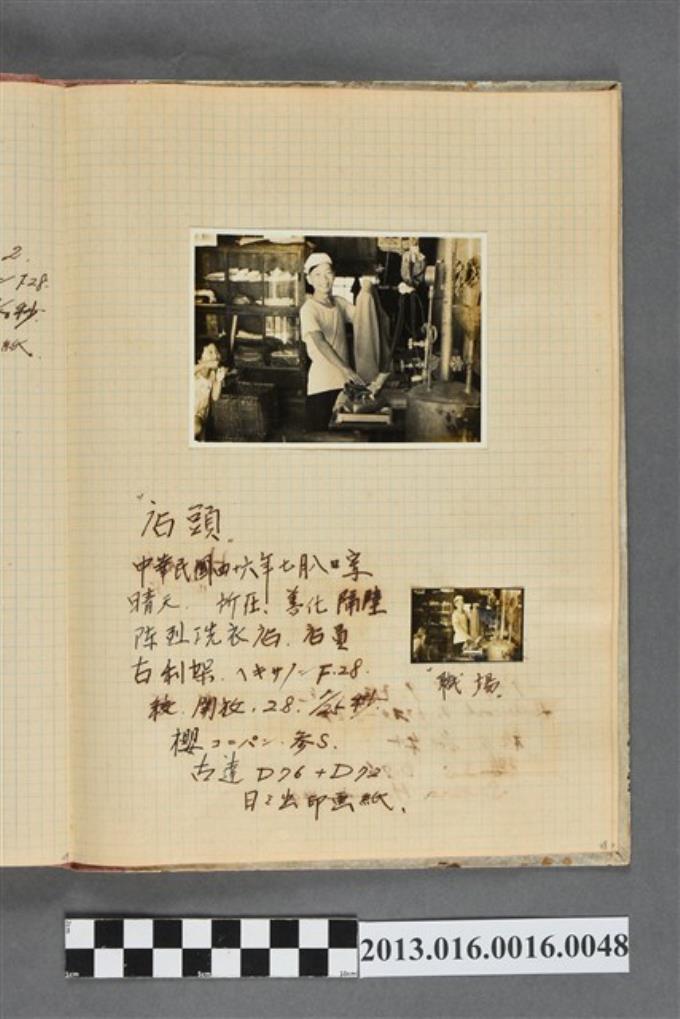 2.
F.28.
秒.
紙.
"店頭.
中華民國卅六年七月八口寫
晴天. 所在: 善化 隔壁
陈烈洗衣店. 店員
古利架. ヘキサノン F.28.
絞. 開放. 28. 1/25秒.
櫻コーパン. 参S.
古達 D76+D72
日之出印画紙.
"職場.
2013.016.0016.0048
1cm
5cm
10cm